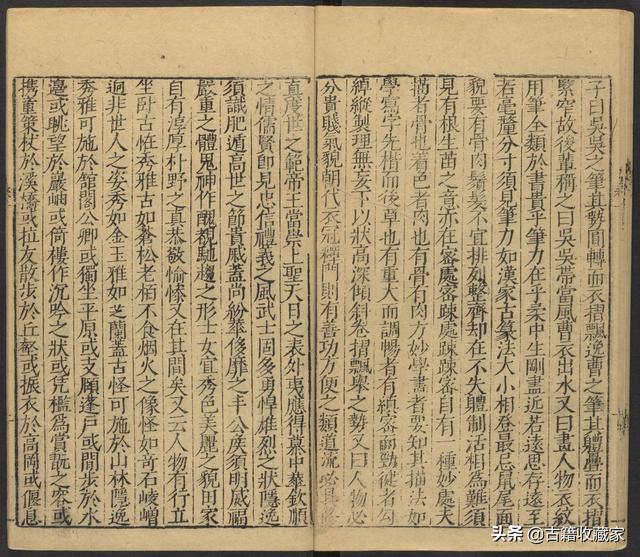 子曰吳吳之筆其勢圓轉而衣摺飄逸曹之筆其軆疊而衣摺
緊窄故後輩稱之曰吳吳帶當風曹衣出水又曰畫人物衣紋
用筆全類於書貴乎筆力在乎柔中生剛盡近若遠思存後至
若毫釐分寸須見筆力如漢家古篆法大小相登最忌鼠尾面
貌要有骨肉鬚髮不宜排列整齊却在不失體制活相為難須
見有根生苗之意亦在密處密踈處踈踈密自有一種妙處夫
描者骨也着色者肉也有骨有肉方妙學畫者要知其描法如
學寫字先楷而後草也有重大而調暢者有縝密而勁徤者勾
綽縱製理無妄下以狀高深傾斜卷摺飄舉之勢又曰人物必
分貴賤氣貌朝代衣冠釋門則有善功方便之類道流必具修
真度世之範帝王當崇上聖天日之表外夷應得慕中華欽順
之情儒賢即見忠信禮義之風武士固多勇悍雄烈之狀隱逸
須識肥遁高世之節貴戚蓋尚紛華侈靡之丰公侯須明威福
嚴重之體鬼神作醜馳趡之形士女宜秀色美麗之貌田家
自有淳厚朴野之真恭敬愉慘又在其間矣又云人物有行立
坐卧古恠秀雅古如蒼松老栢不食烟火之像怪如奇石峻嶒
迥非世人之姿秀如金玉雅如芝蘭蓋古怪可施於山林隱逸
秀雅可施於舘閣公卿或獨坐平原或支頤蓬戸或閒步於水
邉或眺望於巖岫或倚樓作沉吟之狀或凭檻為賞翫之容或
携童策杖於溪橋或拉友散步於丘壑或振衣於高岡或偃息
头条 @古籍收藏家